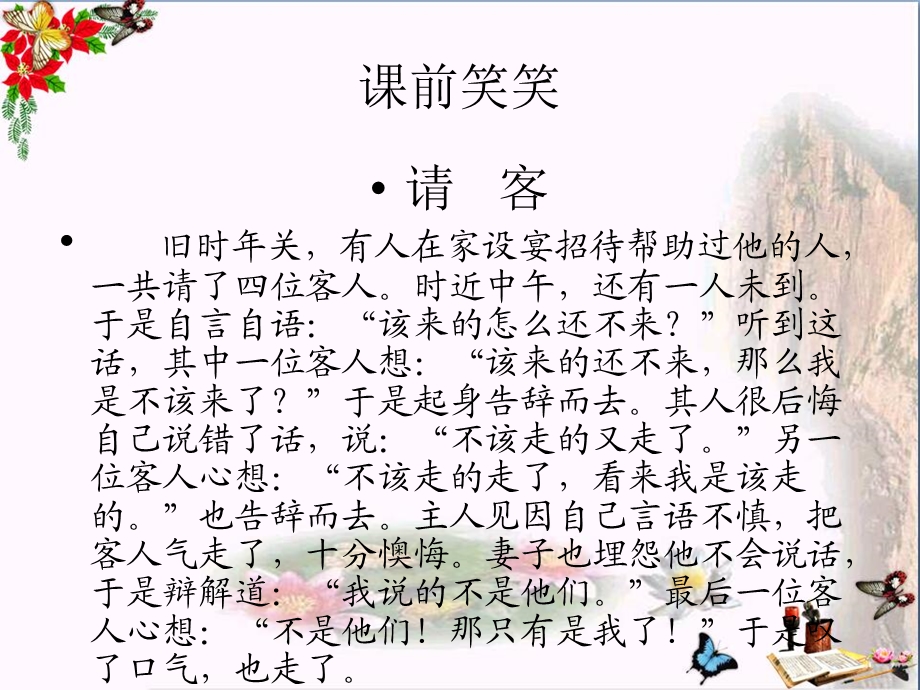 课前笑笑
• 请 客
• 旧时年关，有人在家设宴招待帮助过他的人，
一共请了四位客人。时近中午，还有一人未到。
于是自言自语：“该来的怎么还不来？”听到这
话，其中一位客人想：“该来的还不来，那么我
是不该来了？”于是起身告辞而去。其人很后悔
自己说错了话，说：“不该走的又走了。”另一
位客人心想：“不该走的走了，看来我是该走
的。”也告辞而去。主人见因自己言语不慎，把
客人气走了，十分懊悔。妻子也埋怨他不会说话，
于是辩解道：“我说的不是他们。”最后一位客
人心想：“不是他们！那只有是我了！”于是叹
了口气，也走了。